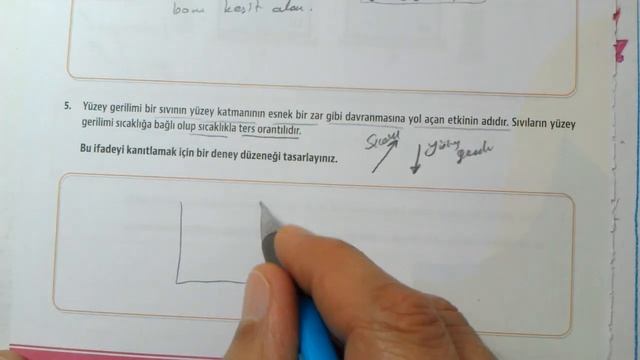 boru kesit alan.
5. Yüzey gerilimi bir sıvının yüzey katmanının esnek bir zar gibi davranmasına yol açan etkinin adıdır. Sıvıların yüzey
gerilimi sıcaklığa bağlı olup sıcaklıkla ters orantılıdır.
Bu ifadeyi kanıtlamak için bir deney düzeneği tasarlayınız.